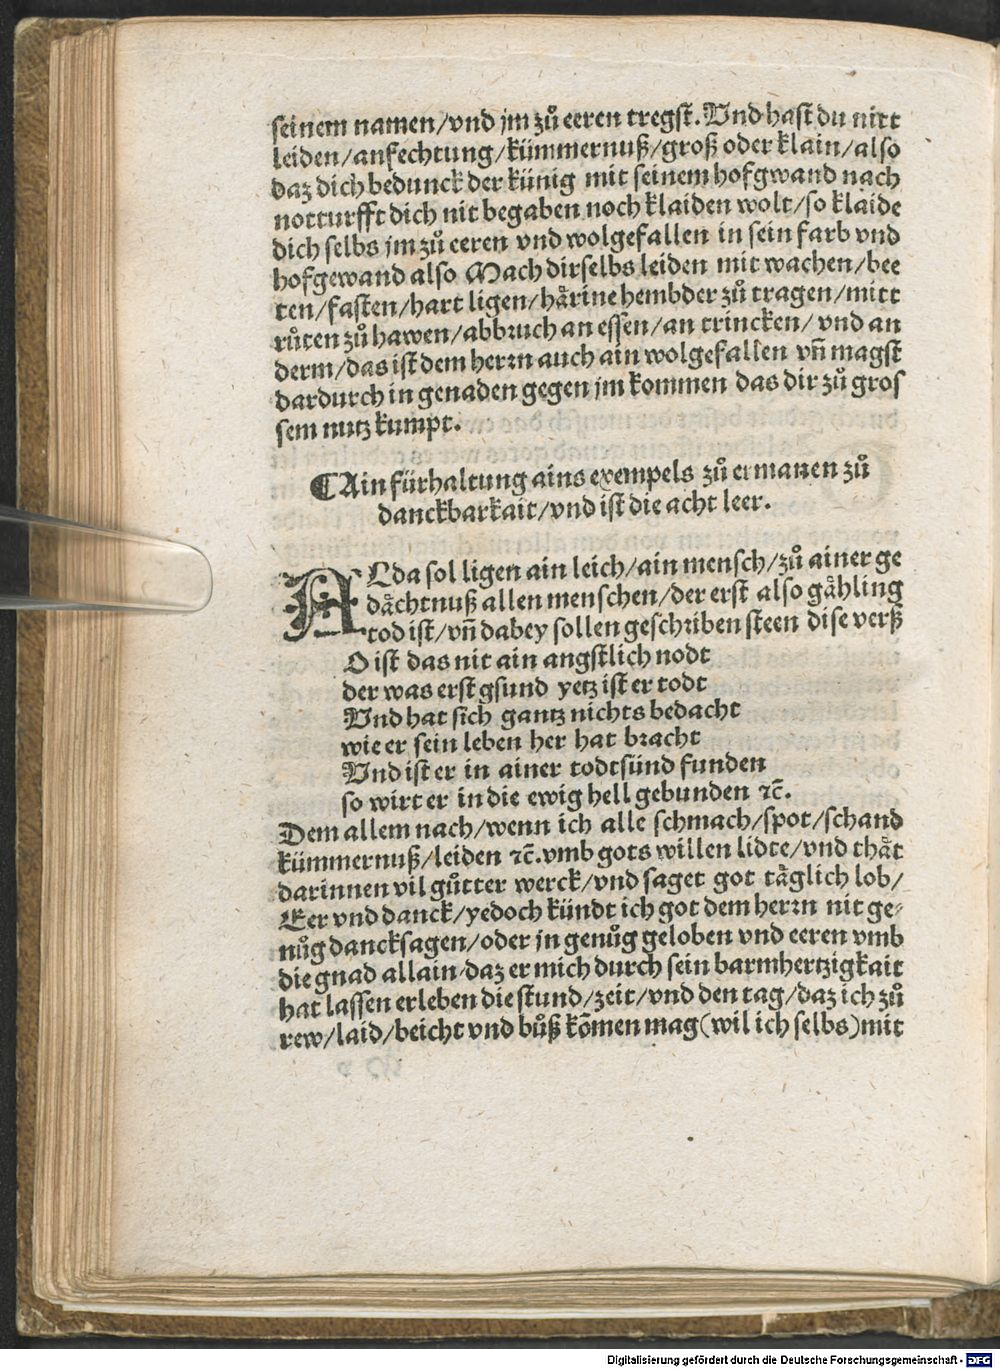 seinem namen/vnd jm zů eeren tregst. Vnd hast du nitt
leiden/anfechtung/kümmernuß/groß oder klain/also
daz dich bedunck der künig mit seinem hofgwand nach
notturfft dich nit begaben noch klaiden wolt/so klaide
dich selbs jm zů eeren vnd wolgefallen in sein farb vnd
hofgewand also Mach dir selbs leiden mit wachen/bee
ten/fasten/hart ligen/hårine hembder zů tragen/mitt
růten zů hawen/abbruch an essen/an trincken/vnd an
derm/das ist dem herrn auch ain wolgefallen vñ magst
dardurch in genaden gegen jm kommen das dir zů gros
sem nutz kumpt.
¶Ain fürhaltung ains exempels zů ermanen zů
danckbarkait/vnd ist die acht leer.
ALda sol ligen ain leich/ain mensch/zů ainer ge
dåchtnuß allen menschen/der erst also gåhling
tod ist/vñ dabey sollen geschriben steen dise verß
O ist das nit ain angstlich nodt
der was erst gsund yetz ist er todt
Vnd hat sich gantz nichts bedacht
wie er sein leben her hat bracht
Vnd ist er in ainer todtsünd funden
so wirt er in die ewig hell gebunden ⁊c̃.
Dem allem nach/wenn ich alle schmach/spot/schand
kümmernuß/leiden ⁊c̃. vmb gots willen lidte/vnd thåt
darinnen vil gůtter werck/vnd saget got tåglich lob/
Eer vnd danck/yedoch kündt ich got dem herrn nit ge-
nůg dancksagen/oder jn genůg geloben vnd eeren vmb
die gnad allain/daz er mich durch sein barmhertzigkait
hat lassen erleben die stund/zeit/vnd den tag/daz ich zů
rew/laid/beicht vnd bůß kõmen mag(wil ich selbs)mit
Digitalisierung gefördert durch die Deutsche Forschungsgemeinschaft - DFG